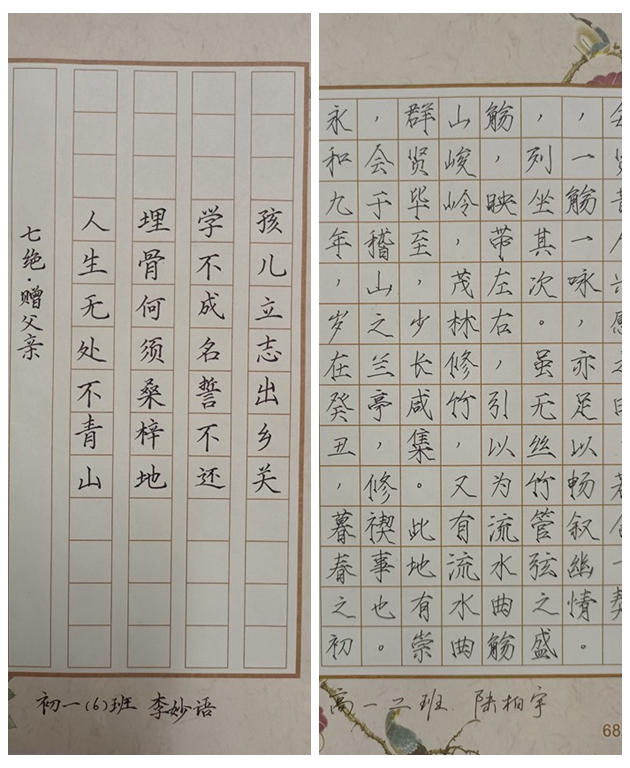 孩儿立志出乡关
学不成名誓不还
埋骨何须桑梓地
人生无处不青山
七绝·赠父亲
初一(6)班 李妙语
永和九年,岁在癸丑,暮春之初
,会于稽山之兰亭,修禊事也。
群贤毕至,少长咸集。此地有崇
山峻岭,茂林修竹,又有流水曲
觞,映带左右,引以为流水曲觞
,列坐其次。虽无丝竹管弦之盛
,一觞一咏,亦足以畅叙幽情。
高一二班 陆柏宇
68